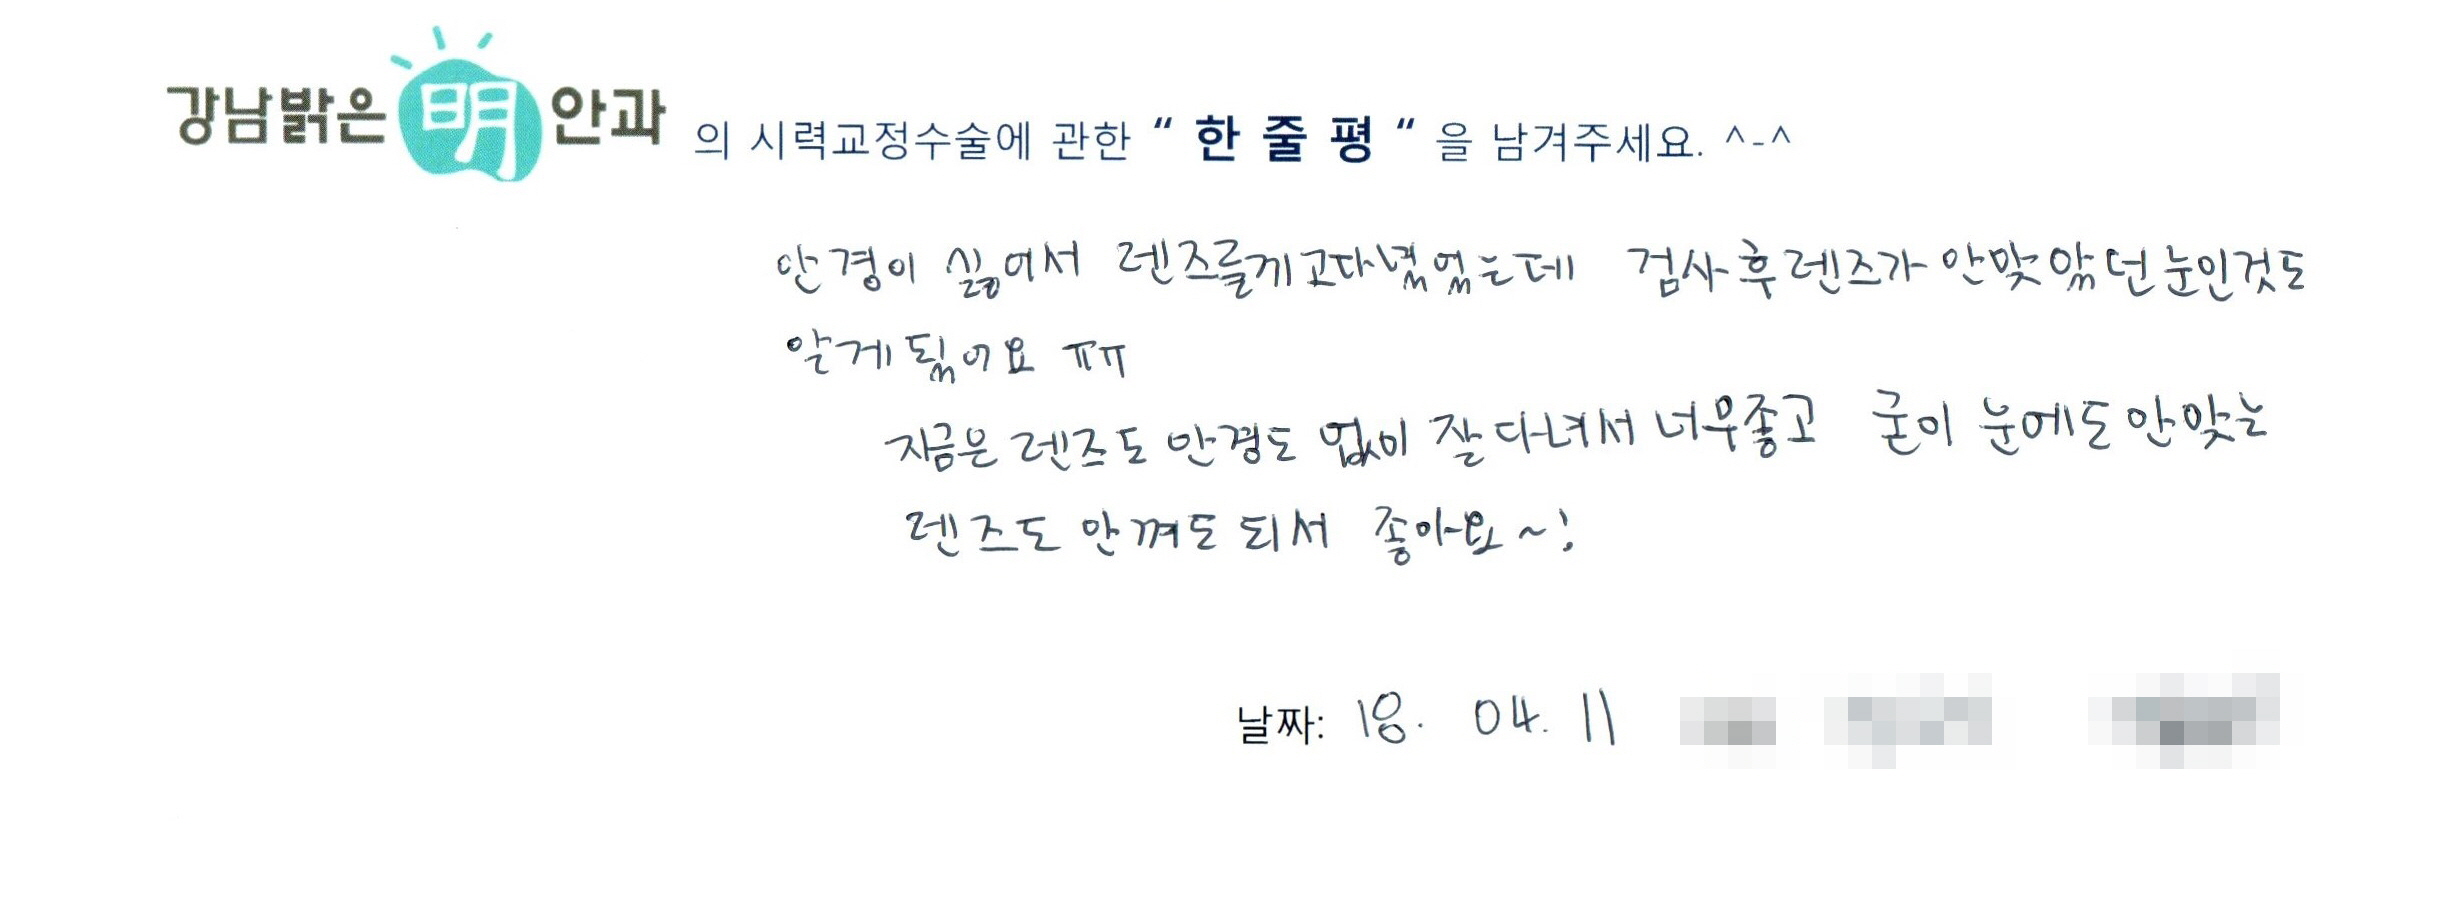 강남밝은 明 안과 의 시력교정수술에 관한 “ 한 줄 평 “ 을 남겨주세요. ^-^
안경이 싫어서 렌즈를끼고다녔었는데 검사후렌즈가 안맞았던눈인것도
알게 됐어요 ㅠㅠ
지금은 렌즈도 안경도 없이 잘다녀서 너무좋고 굳이 눈에도 안맞는
렌즈도 안껴도 되서 좋아요~!
날짜: 18. 04. 11